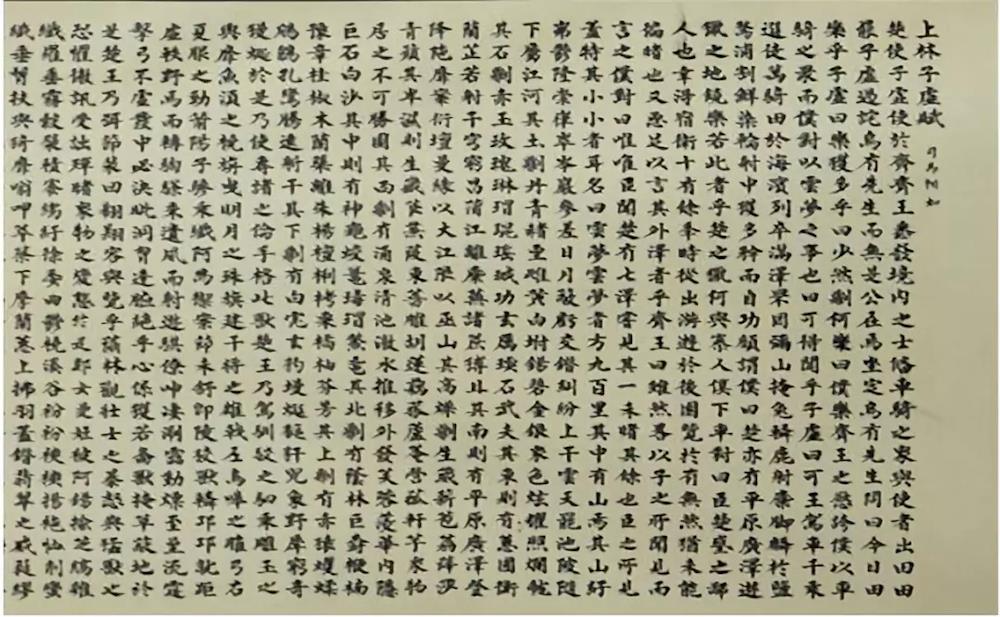 上林子虛賦 司馬相如
楚使子虛使於齊齊王悉發境內之士備車騎之衆與使者出田田
罷子虛過詫烏有先生而無是公在焉坐定烏有先生問曰今日田
樂乎子虛曰樂獲多乎曰少然則何樂曰僕樂齊王之慾誇僕以車
騎之衆而僕對以雲夢之事也曰可得聞乎子虛曰可王駕車千乘
選徒萬騎田於海濱列卒滿澤罘罔彌山掩兔轔鹿射麋腳麟於鹽
騖浦割鮮染輪射中獲多矜而自功顧謂僕曰楚亦有平原廣澤遊
獵之地饒樂若此者乎楚之獵何與寡人僕下車對曰臣楚國之鄙
人也幸得宿衛十有餘年時從出游遊於後園覽於有無然猶未能
徧睹也又惡足以言其外澤者乎齊王曰雖然略以子之所聞見而
言之僕對曰唯唯臣聞楚有七澤嘗見其一未睹其餘也臣之所見
蓋特其小小者耳名曰雲夢雲夢者方九百里其中有山焉其山紆
岪鬱隆崇嵂崒岑巖參差日月蔽虧交錯糾紛上干雲天罷池陂陁
下屬江河其土則丹青赭堊雌黃白坿錫碧金銀衆色炫燿照爛龍
其石則赤玉玫瑰琳瑉琨珸瑊功玄厲瑌石武夫其東則有蕙圃衡
蘭芷若射干穹窮昌蒲江離麋蕪諸蔗猼且其南則有平原廣澤登
降陁靡案衍壇曼緣以大江限以巫山其高燥則生葴薪苞荔薛莎
青薠其卑溼則生藏莨蒹葭東蘠雕胡蓮藕菰蘆菴䕡軒芋衆物
居之不可勝圖其西則有涌泉清池激水推移外發芙蓉菱華內隱
巨石白沙其中則有神龜蛟鼉瑇瑁鱉黿其北則有陰林巨樹楩楠
豫章桂椒木蘭蘗離朱楊樝梸梬栗橘柚芬芳其上則有赤猿蠷蝚
鵷鶵孔鸞騰遠射干其下則有白虎玄豹蟃蜒貙犴兕象野犀窮奇
獌狿於是乃使專諸之倫手格此獸楚王乃駕馴駮之駟乘雕玉之
輿靡魚須之橈旃曳明月之珠旗建干將之雄戟左烏嗥之雕弓右
夏服之勁箭陽子驂乘纖阿爲御案節未舒即陵狡獸轔邛邛蹵距
虛軼野馬而轊騊駼乘遺風而射遊騏倏眒淒浰雷動熛至星流霆
擊弓不虛發中必決眦洞胸達腋絕乎心係獲若雨獸掩草蔽地於
是楚王乃弭節裴回翱翔容與覽乎陰林觀壯士之暴怒與猛獸之
恐懼徼郤受詘殫睹衆物之變態於是鄭女曼姬被阿錫揄紵縞雜
纖羅垂霧縠襞積褰縐紆徐委曲鬱橈溪谷衯衯裶裶揚袘恤削蜚
纖垂髾扶與猗靡噏呷萃蔡下摩蘭蕙上拂羽蓋錯翡翠之威蕤繆